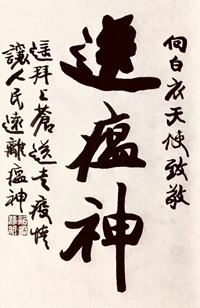 向白衣天使致敬
送瘟神
遥拜上蒼送走疫情
讓人民远離瘟神